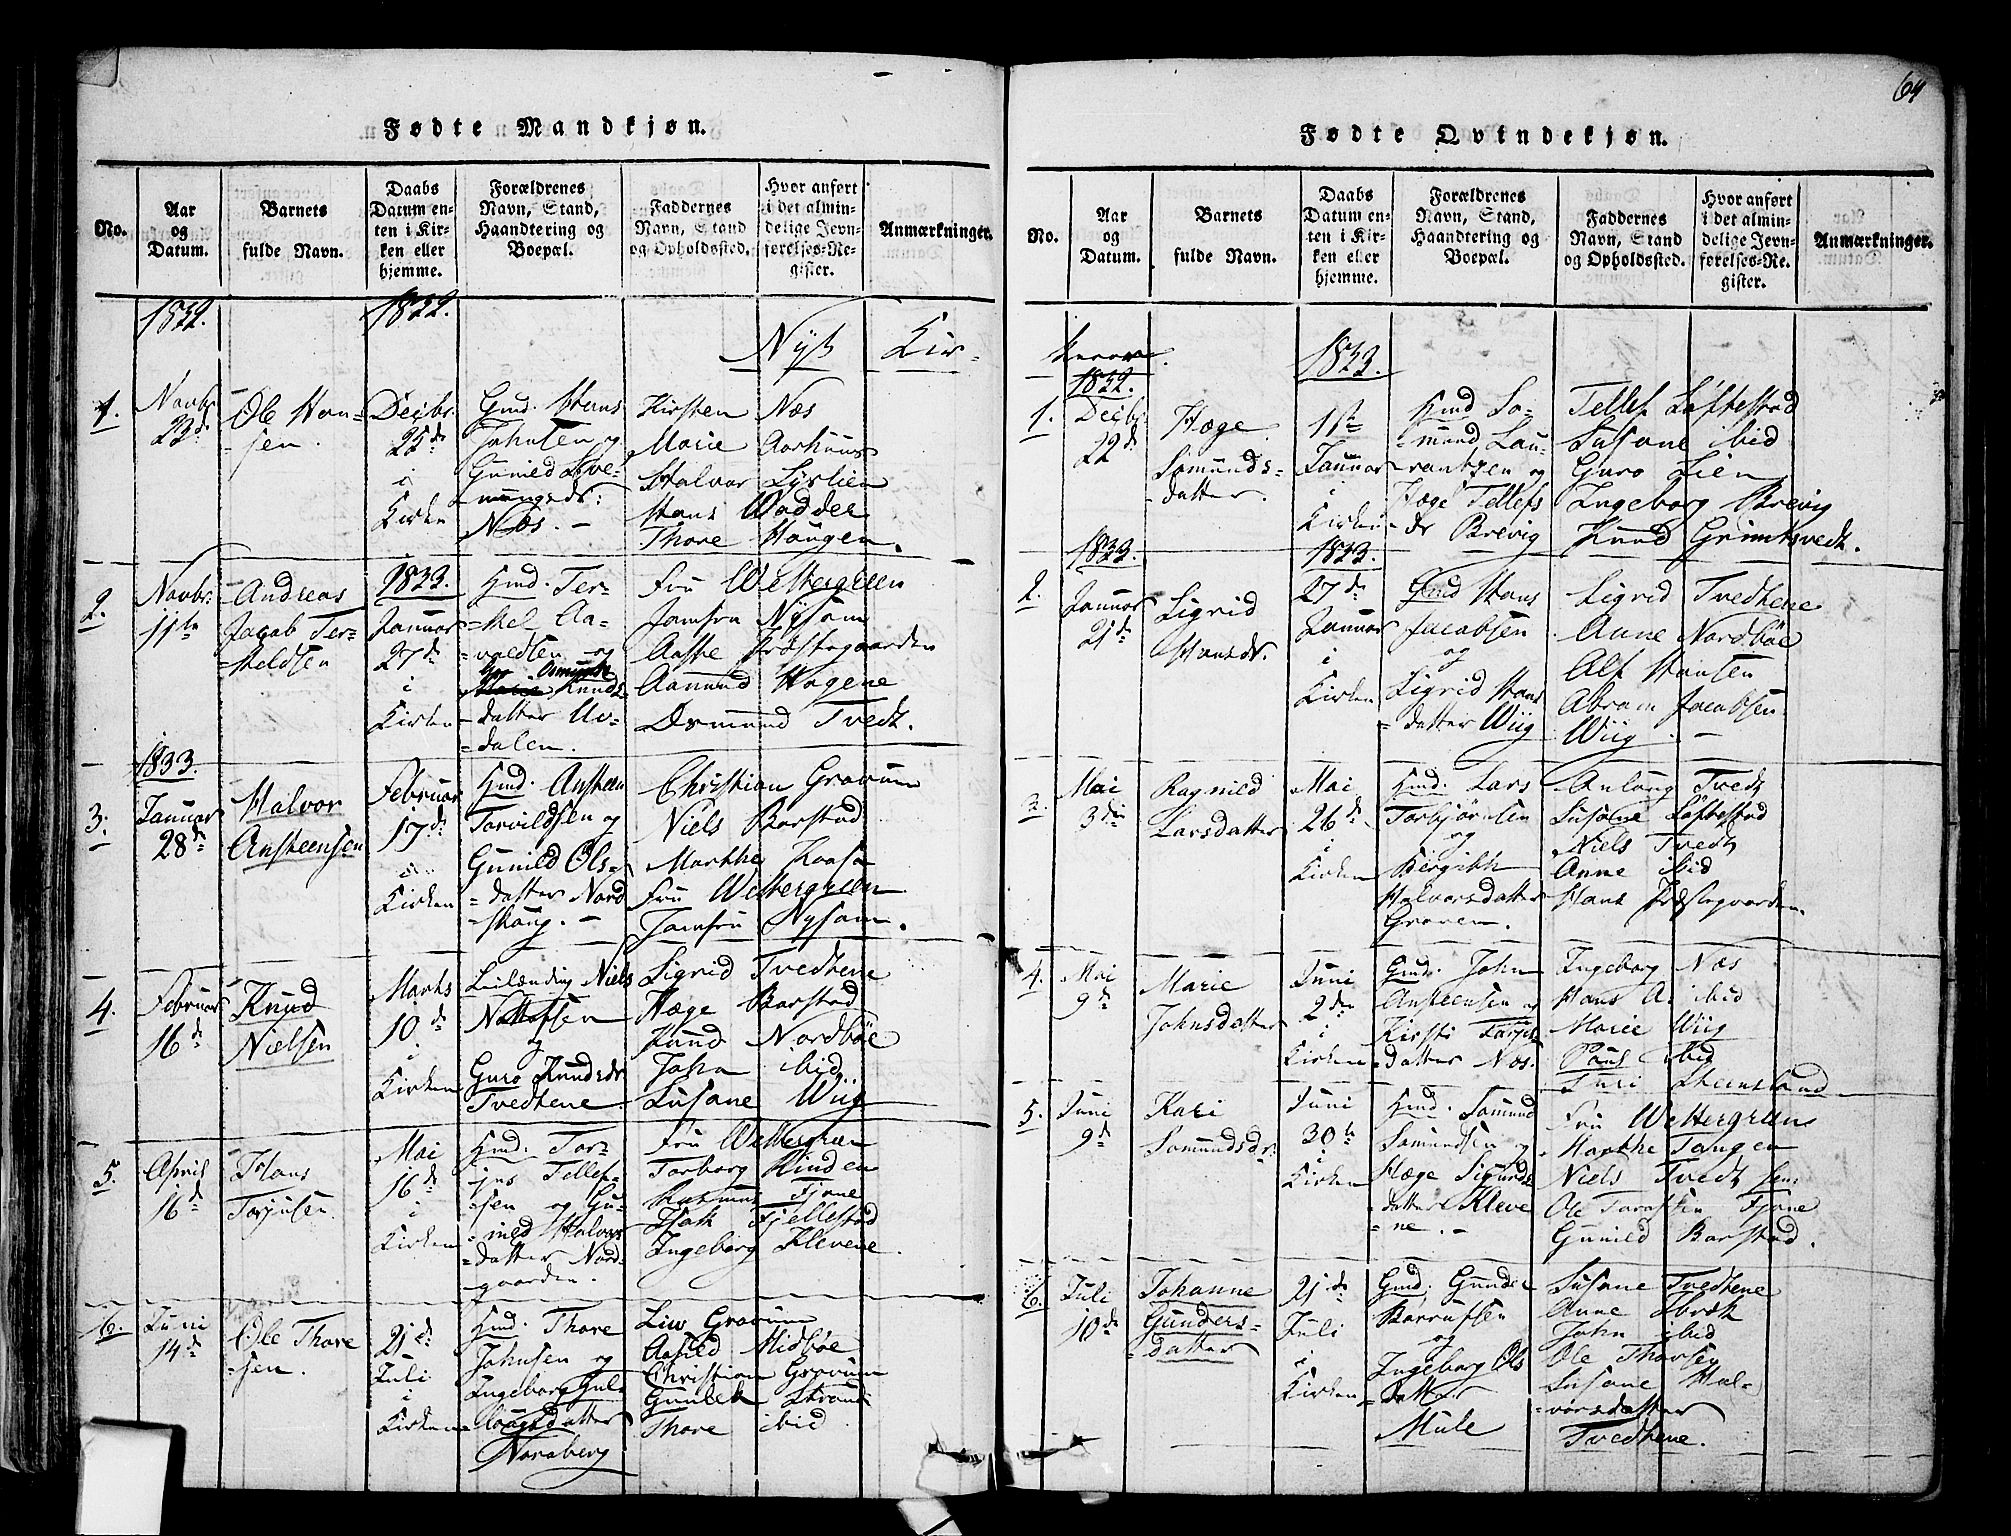 64
Fødte Mandkjøn.
No.
Aar
og
Datum.
Barnets
fulde Navn.
Daabs
Datum en-
ten i Kir-
ken eller
hjemme.
Forældrenes
Navn, Stand,
Haandtering og
Boepæl.
Faddernes
Navn, Stand
og Opholdssted.
Hvor anført
i det almin-
delige Jevn-
førelses-Re-
gister.
Anmærkninger.
1832.
1832.
Kir-
1.
Novbr
23de
Ole Han-
sen.
Decbr.
25de
i
Kirken
Gmd. Hans
Johnsen og
Gunild
Næs. -
Kirsten Næs
Marie Aarhuus
Halvor Lyslien
Hans Waddel
Thore Haugen.
2.
Novbr:
11te
Andreas
Jacob Ter-
keldsen
1833.
Januar
27de
i
Kirken
Hmd. Ter-
kel Aa-
valdsen og
Knuds
datter Uv-
dalen.
Fru Wettergreen
Jomfru Nysom
Aasne Præstegaarden
Aamund Hagene
Osmund Tvedt.
1833.
3.
Januar
28de
Halvor
Ansteensen
Februar
17de
i
Kirken
Hmd. Ansteen
Torvildsen og
Gunild Ols-
datter Nord
skoug. -
Christian Gravum
Niels Barstad
Marthe Kaasa
Fru Wettergreen
Jomfru Nysom.
4.
Februar
16de
Knud
Nielsen
Marts
10de
i
Kirken
Leilænding Niels
og
Guro Knudsdr
Tvedtene.
Sigrid Tvedtene
Hæge Barstad
Knud Nordbøe
John ibid
Susane Wiig
5.
April
16de
Hans
Torjusen.
Mai
16de
i
Kirken
Hmd. Tor-
jus Tellef-
sen og Gu-
nild Halvors
datter Nord-
gaarden.
Fru Wettergreen
Torborg Kinden
Rasmus Fjone
Isak Fjellestad
Ingeborg Klevene.
6.
Juni
14de
Ole Thore
sen.
21de
Juli
i
Kirken
Hmd. Thore
Johnsen og
Ingeborg Gul-
lougsdatter
Noraberg
Liv Gravum
Aasild Midbøe
Christian Gravum
Gunlek Strand
Thore ibid
Fødte Qvindekjøn.
No.
Aar
og
Datum.
Barnets
fulde Navn.
Daabs
Datum en-
ten i Kir-
ken eller
hjemme.
Forældrenes
Navn, Stand,
Haandtering og
Boepæl.
Faddernes
Navn, Stand
og Opholdssted.
Hvor anført
i det almin-
delige Jevn-
førelses-Re-
gister.
Anmærkninger.
1833.
1832.
1.
Decbr
22de
Hæge
Somunds-
datter.
1ste
Januar
i
Kirken
Hmd So-
mund Lau-
rantzen og
Hæge Tellefs
dr Brevig
Tellef Løftestad
Susane ibid
Guro Lien
Ingeborg Brevig
Knud Grimtsvedt.
1833.
1833.
2.
Januar
21de
Sigrid
Hansdr.
27de
Januar
i
Kirken
Gmd Hans
Jacobsen
og
Sigrid Hans
datter Wiig
Sigrid Tvedtene
Anne Nordbøe
Alf Hansen
Abram Jacobsen
Wiig. -
3.
Mai
3die
Ragnild
Larsdatter
Mai
26de
i
Kirken
Hmd. Lars
Torbjørnsen
og
Birgithe
Halvorsdatter
Graven.
Anlaug Tvedt
Susane Løftestad
Niels Tvedt
Anne ibid
Hans Præstegaarden.
4.
Mai
9de
Marie
Johnsdatter
Juni
2den
i
Kirken
Gmd. John
Ansteensen og
Kirsti
datter Næs.
Ingeborg Næs
Hans A. ibid
Marie Wiig
Poul ibid
Turi Steensland
5.
Juni
9de
Kari
Somundsdr.
Juni
30te
i
Kirken
Hmd. Somund
Somundsen og
Hæge Sigurds
datter Kleve
ne. -
Fru Wettergreen
Marthe Tangen
Niels Tvedt sen.
Ole Taraldsen Fjone
Gunild Barstad.
6.
Juli
10de
Johanne
Gunders-
datter
21de
Juli
i
Kirken
Gmd. Gunder
og
Ingeborg Ols
datter
Mule
Susane Tvedtene
Anne
John ibid
Ole Thorsen
Susane Hal-
vorsdatter
Tvedtene.